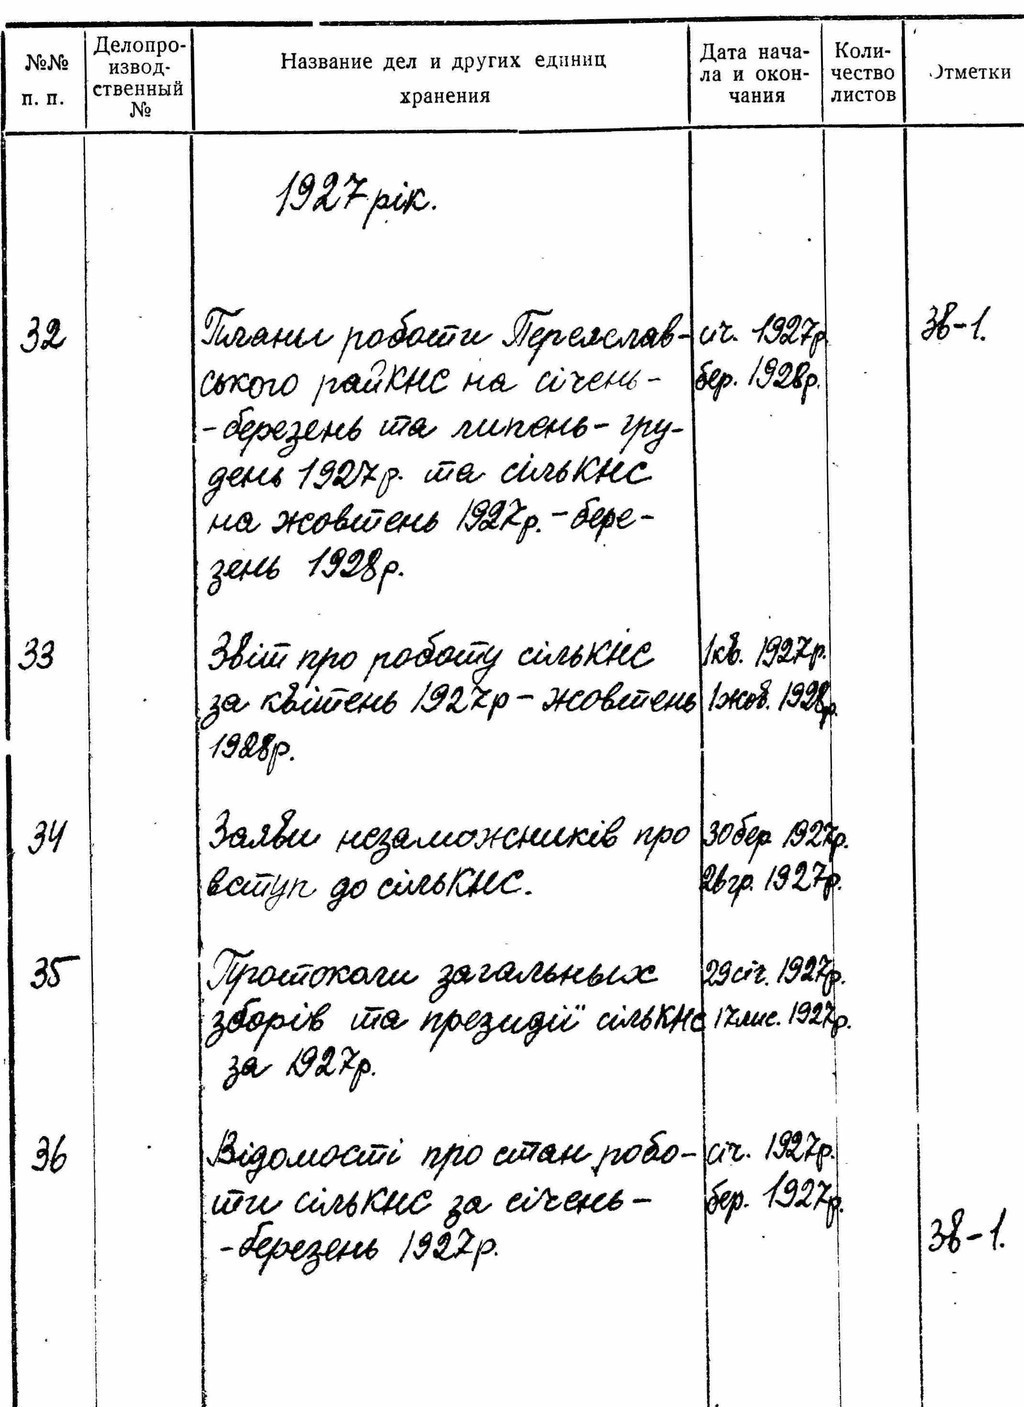 №№ п. п.
Делопро-
извод-
ственный
№
Название дел и других единиц
хранения
Дата нача-
ла и окон-
чания
Коли-
чество
листов
Отметки
1927 рік.
32
Плани роботи Переяслав-
ського райКНС на січень-
-березень та липень-гру-
день 1927р. та сільКНС
на жовтень 1927р.-бере-
зень 1928р.
січ. 1927р.
бер. 1928р.
Зв-1.
33
Звіт про роботу сільКНС
за квітень 1927р - жовтень
1928р.
1кв. 1927р.
1жов. 1928р.
34
Заяви незаможників про
вступ до сільКНС.
30бер. 1927р.
26гр. 1927р.
35
Протоколи загальных
зборів та президії сільКНС
за 1927р.
29січ. 1927р.
17лис. 1927р.
36
Відомості про стан робо-
ти сільКНС за січень-
-березень 1927р.
січ. 1927р.
бер. 1927р.
Зв-1.